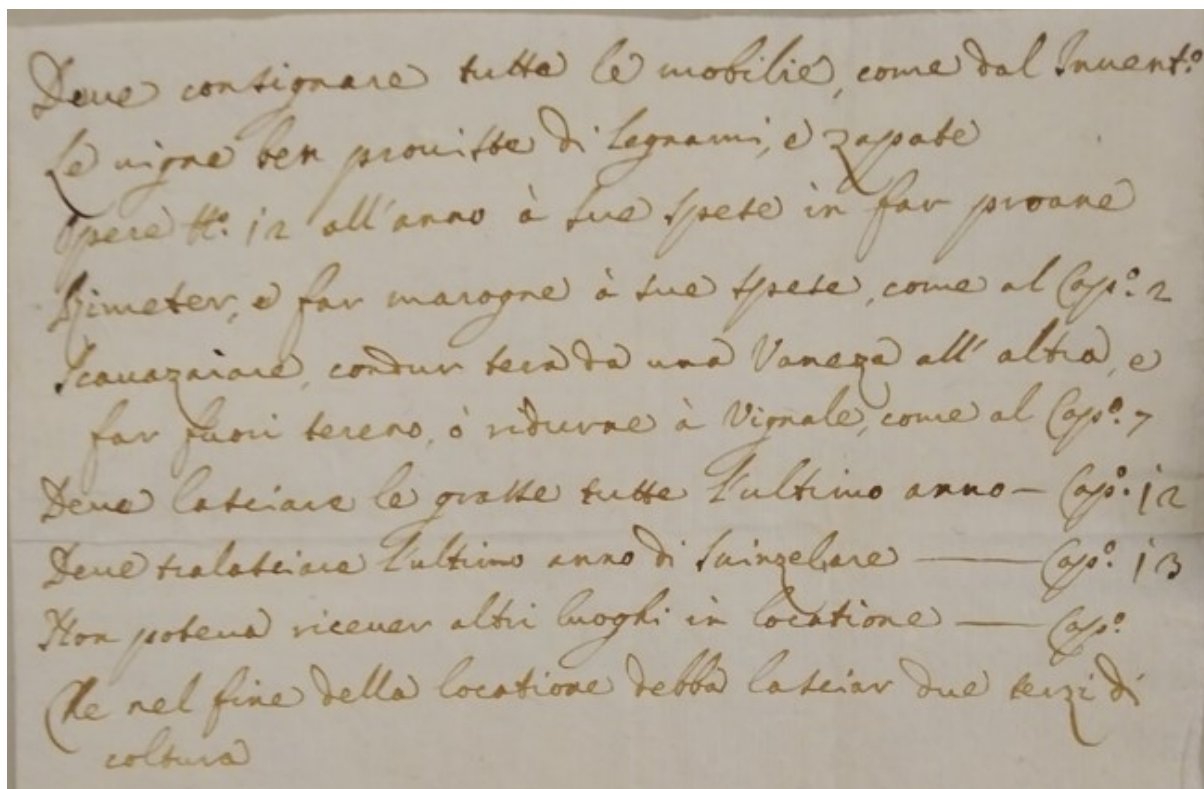 Deue consignare tutte le mobilie, come dal Inuent.º
Le uigne ben prouiste di legnami, e zapate
Opere N.º 12 all'anno à sue spese in far proane
e far marogne à sue spese, come al Cap.º 2
Scauazaiare, condur tera da una Vaneza all' altra, e
far fuori tereno, ò ridurne à Vignale, come al Cap.º 7
Deue lasciare le grasse tutte l'ultimo anno — Cap.º 12
Deue tralasciare l'ultimo anno di — Cap.º 13
Non poteua riceuer altri luoghi in locatione — Cap.º
Che nel fine della locatione debba lasciar due terzi di
coltura